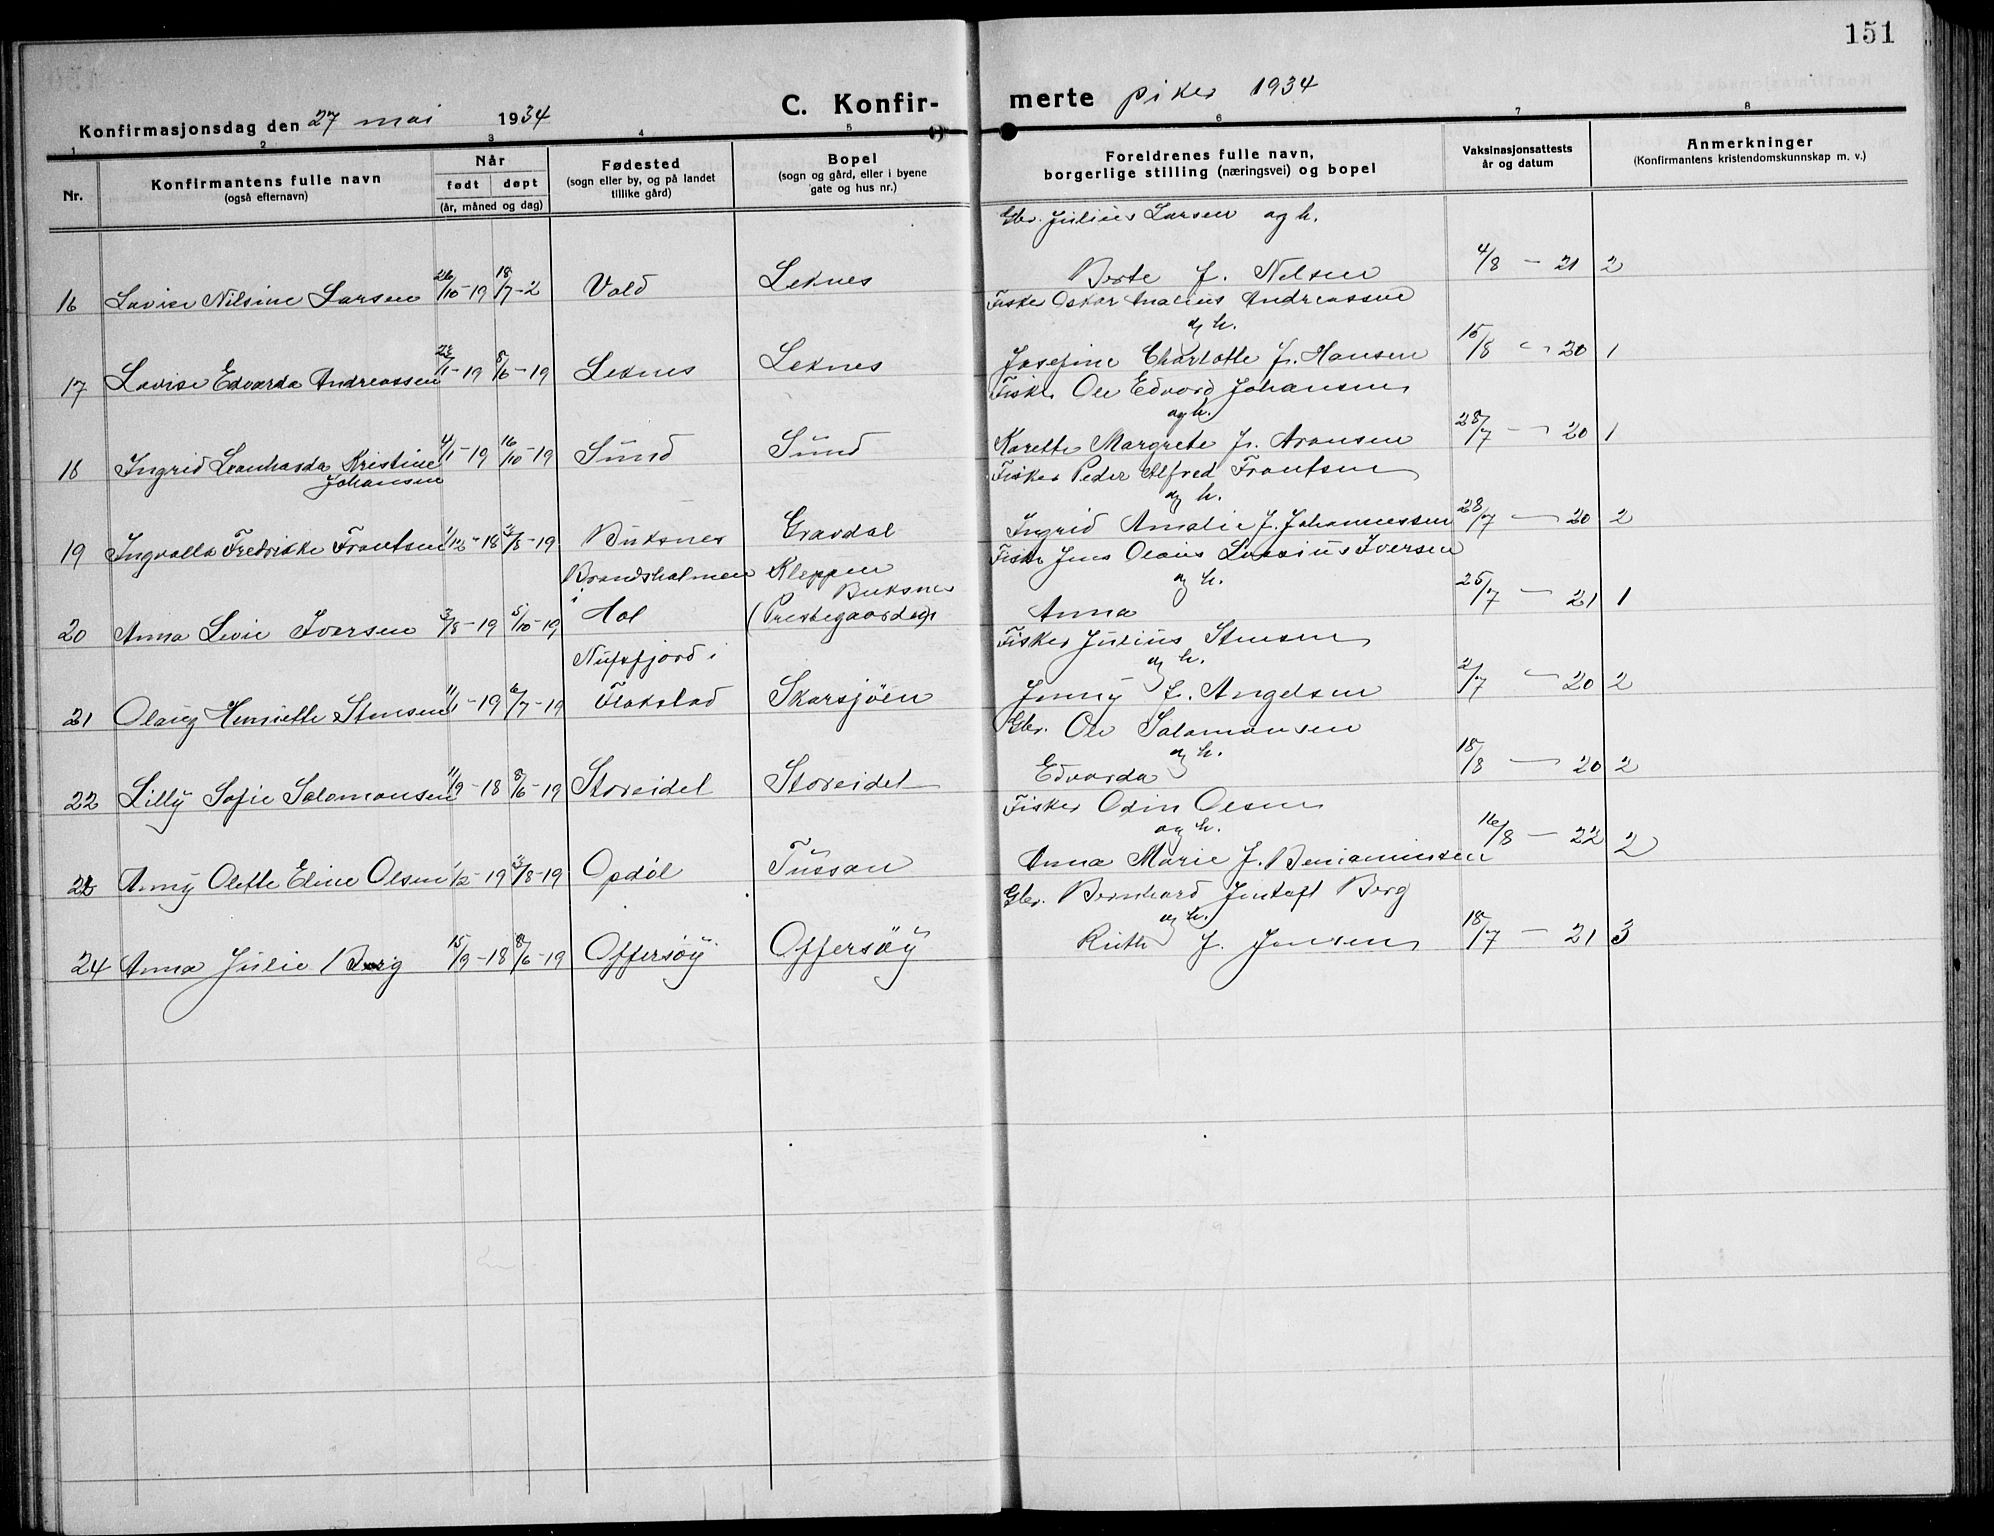 151
C. Konfir-
merte piker 1934
Konfirmasjonsdag den 27 mai 1934
1 2 3 4 5 6 7 8
Nr.
Konfirmantens fulle navn
(også efternavn)
Når
født døpt
(år, måned og dag)
Fødested
(sogn eller by, og på landet
tillike gård)
Bopel
(sogn og gård, eller i byene
gate og hus nr.)
Foreldrenes fulle navn,
borgerlige stilling (næringsvei) og bopel
Vaksinasjonsattests
år og datum
Anmerkninger
(Konfirmantens kristendomskunnskap m. v.)
Gbr. Julius Larsen og h.
16 Lovise Nilsine Larsen 26/10-19 18/7-2 Vold Leknes Berte f. Nilsen 4/8 - 21 2
Fisker Oskar Analius Andreassen
og h.
17 Lovise Edvarda Andreassen 23/1-19 8/6-19 Leknes Leknes Josefine Charlotte f. Hansen 15/8 - 20 1
Fisker Ole Edvard Johansen
og h.
18 Ingrid Leonharda Kristine 4/1-19 16/10-19 Sund Sund Karette Margrete f. Aronsen 28/7 - 20 1
Johansen
Fisker Peder Alfred Frantsen
og h.
19 Ingvalla Fredrikke Frantsen 1/12-18 3/8-19 Buksnes Gravdal Ingrid Amalie f. Johannessen 28/7 - 20 2
Fisker Jens Olaus Iversen
og h.
Brandsholmen Kleppen
i Buksnes
20 Anna Levie Iversen 3/8-19 5/10-19 Hol (Prestegaarden) Anna 25/7 - 21 1
Fisker Julius Stensen
og h.
Nufsfjord i
21 Olaug Henriette Stensen 11/1-19 6/7-19 Flakstad Skarsjöen Jenny f. Angelsen 2/7 - 20 2
Gbr. Ole Salomonsen
og h.
22 Lilly Sofie Salomonsen 11/9-18 8/6-19 Storeidet Storeidet Edvarda 18/8 - 20 2
Fisker Odin Olsen
og h.
Anny Olette Eline Olsen 1/2-19 3/8-19 Opdøl Tussan Anna Marie f. Beniaminsen 16/8 - 22 2
Gbr. Bernhard Jentoft Berg
og h.
24 Anna Julie Berg 15/9-18 8/6-19 Offersøy Offersøy Ruth f. Jensen 18/7 - 21 3